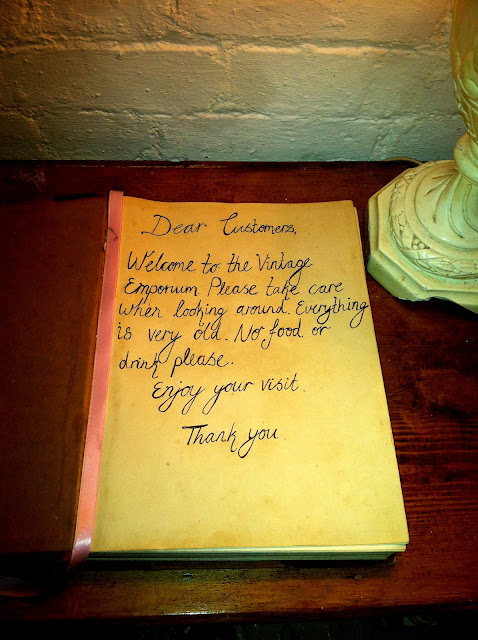 Dear Customers,
Welcome to the Vintage
Emporium Please take care
when looking around. Everything
is very old. No food or
drink please.
Enjoy your visit.
Thank you